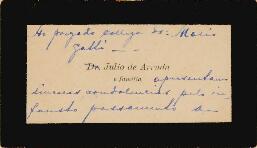 Ao prezado collega Dr. Mario
Gatti
Dr. Julio de Arruda
e familia apresentam
sinceras condolencias pelo in-
fausto passamento de